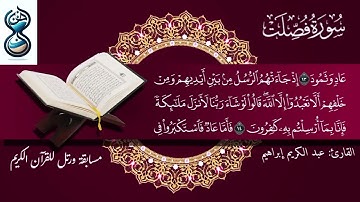 سُورَةُ فُصِّلَتْ
عَادٖ وَثَمُودَ ١٣ إِذۡ جَآءَتۡهُمُ ٱلرُّسُلُ مِنۢ بَيۡنِ أَيۡدِيهِمۡ وَمِنۡ
خَلۡفِهِمۡ أَلَّا تَعۡبُدُوٓاْ إِلَّا ٱللَّهَۖ قَالُواْ لَوۡ شَآءَ رَبُّنَا لَأَنزَلَ مَلَٰٓئِكَةٗ
فَإِنَّا بِمَآ أُرۡسِلۡتُم بِهِۦ كَٰفِرُونَ ١٤ فَأَمَّا عَادٞ فَٱسۡتَكۡبَرُواْ فِي
القارئ: عبد الكريم إبراهيم
مسابقة ورتل للقرآن الكريم